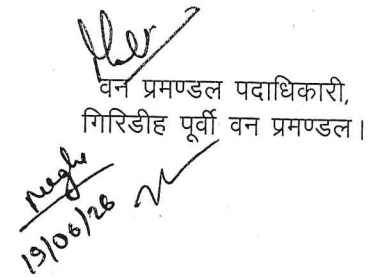 वन प्रमण्डल पदाधिकारी,
गिरिडीह पूर्वी वन प्रमण्डल।
19/06/26